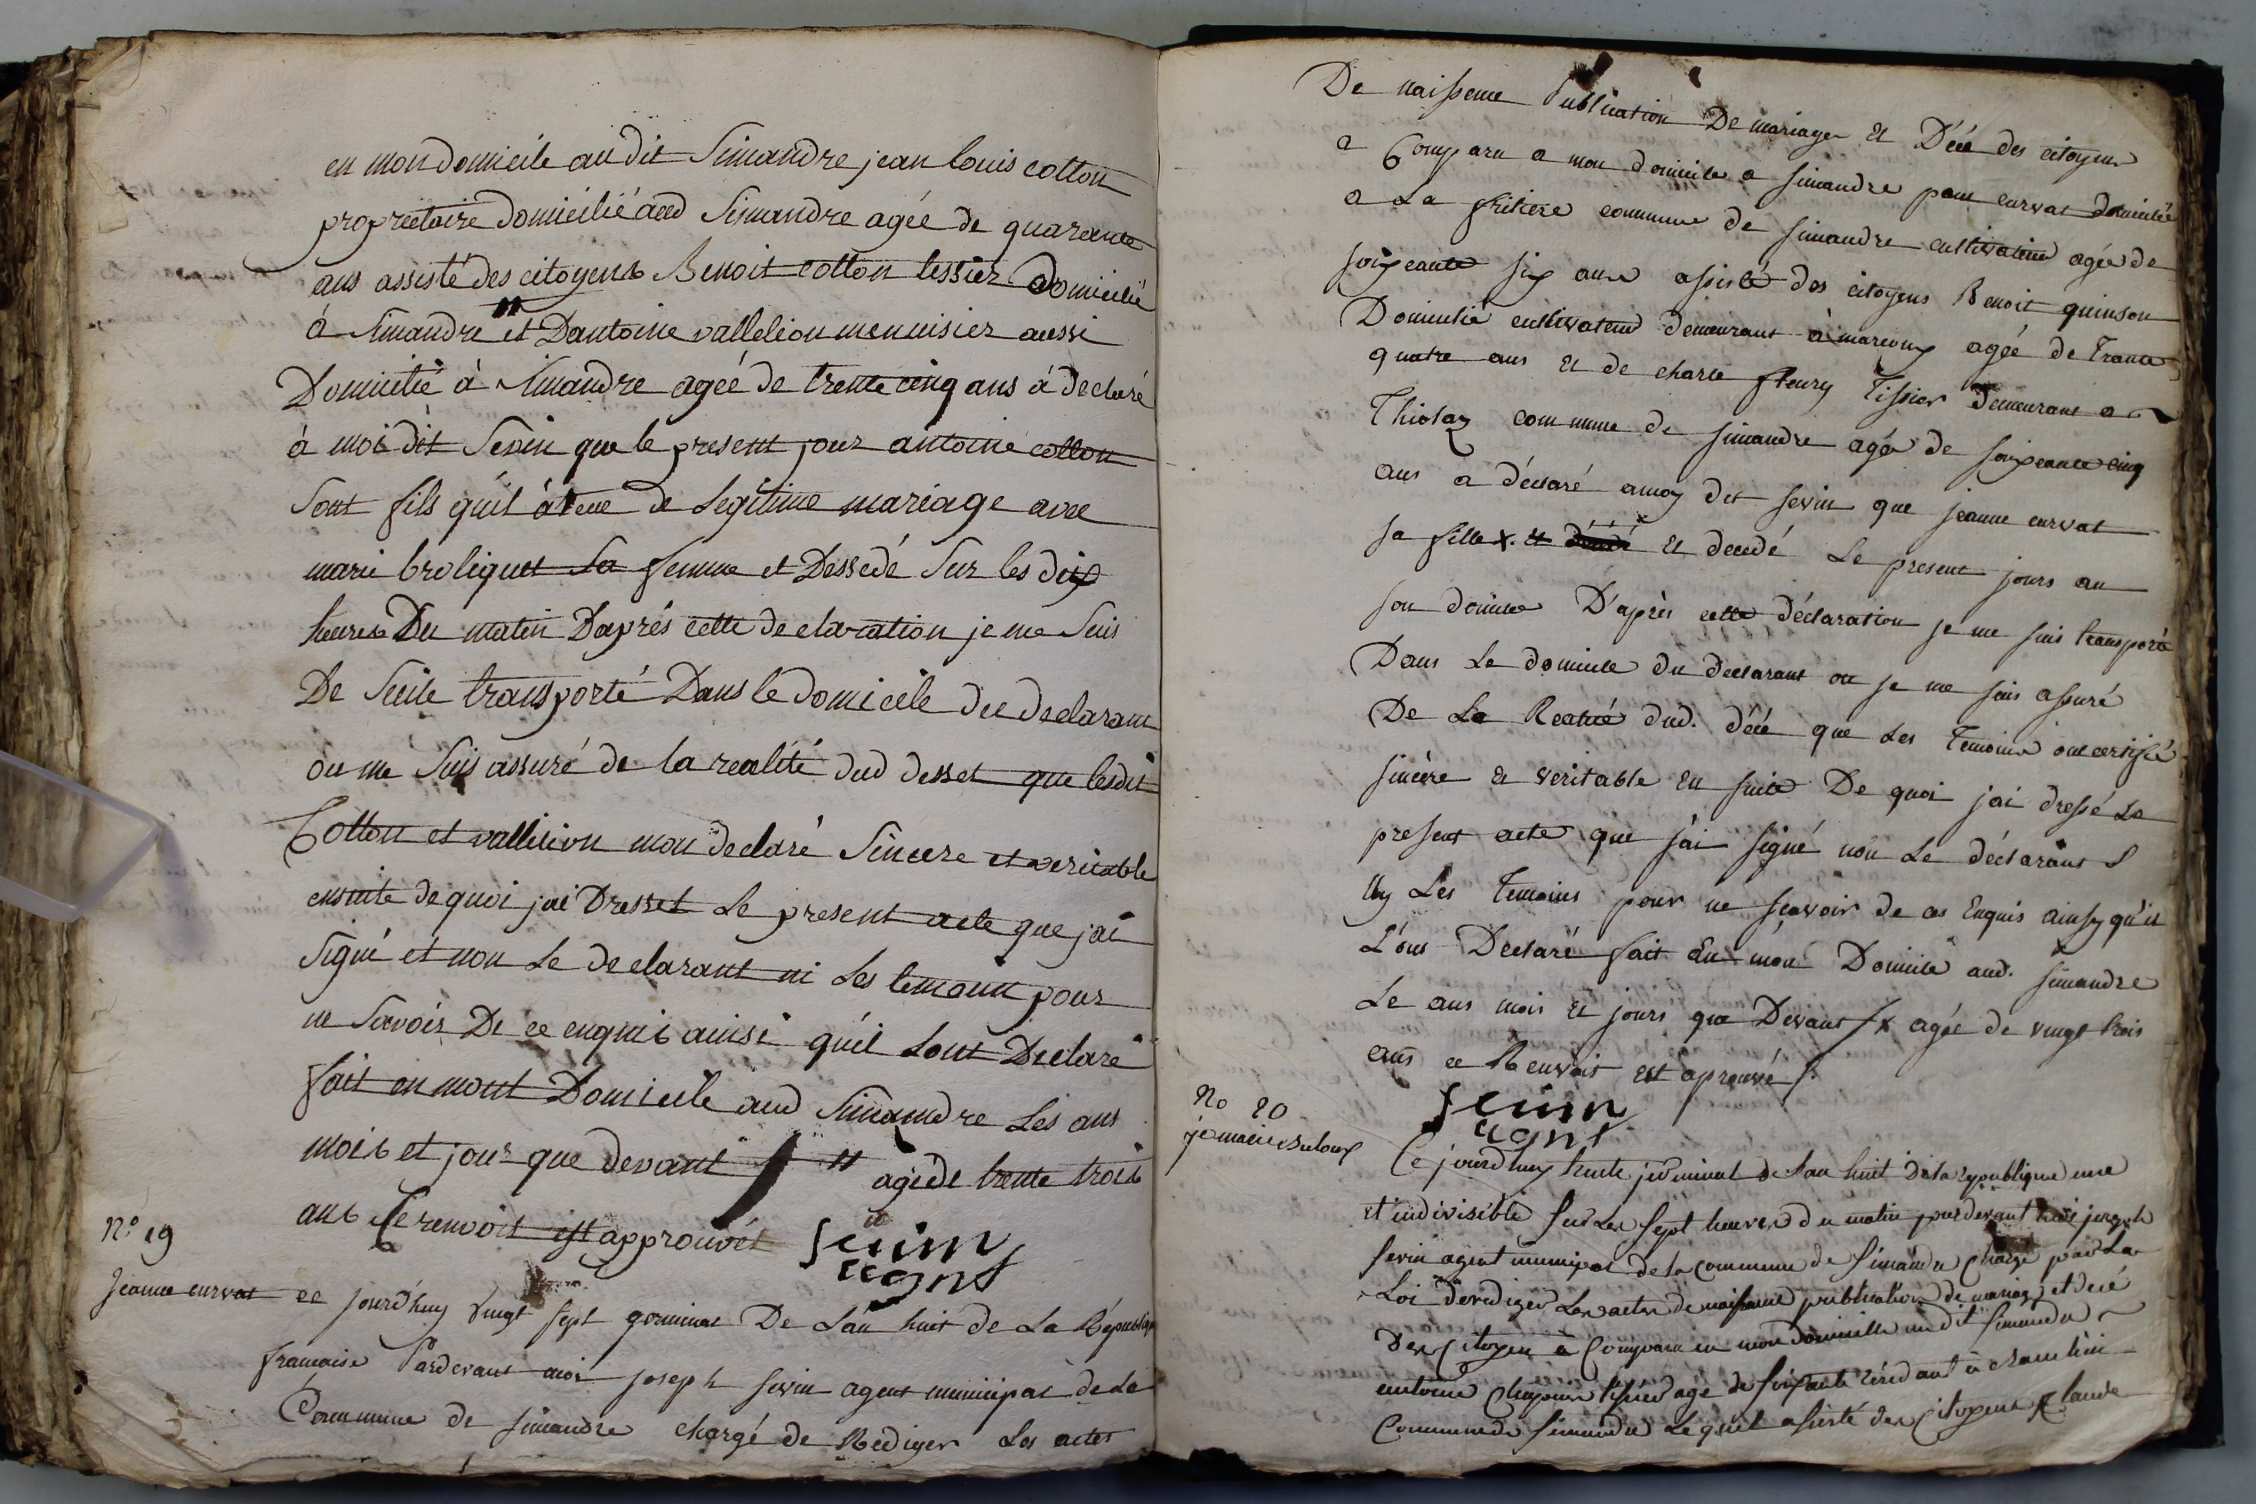 en mon domicile au dit Simandre jean louis cotton
proprietaire domicilié aud Simandre agée de quarante
ans assisté des citoyens Benoit cotton tessier domicilié
à Simandre " et Dantoine vallelion menuisier aussi
Domicilié à Simandre ageé de trente cinq ans à declaré
à moi dit Sevin que le present jour antoine cotton
Sont fils quil à eue de Legitime mariage avec
marie broliquet Sa femme et Dessedé Sur les dix
heures Du matin Daprés cette declaration je me Suis
De Suite transporté Dans le domicile du declarant
ou me Suis assuré de la realité dud desset que lesdit
Cotton et vallelion mon declaré Sincere et veritable
ensuite de quoi jai Dresset Le present acte que jai
Signé et non Le declarant ni Les temoin pour
ne Savoir De ce enquis ainsi quil Lont Declaré
fait en mont Domicile aud Simandre Les ans
mois et jour que devant " agéde trente trois
ans Ce renvoit est approuvét
Sevin
agent
No 19
Jeanne curvat
ce jourd'huy vingt sept germinal De L'an huit de La République
francaise Pardevant moi joseph sevin agent municipal de La
Commune de simandre chargé de Rediger Les actes
De naissence Publication De mariage Et Décé des citoyens
a Comparu a mon domicile a simandre curvat domicilié
a La commune de simandre cultivateur agée de
soixante six ans assisté des citoyens Benoit quinson
Domicilié cultivateur demeurant à agée de Trante
quatre ans Et de charle fleury Tissier demeurant a
Thiolay commune de simandre agée de soixeante cinq
ans a déclaré amoy dit sevin que jeanne curvat
sa fille x. Et decedé Et decedé Le present jours an
son domicile D'après cette déclaration je me suis transporté
Dans Le domicile du declarant ou je me suis assuré
De La dud. décé que Les Temoins ont certifié
sincère Et veritable En suite De quoi jai dressé Le
present acte que j'ai signé non Le déclarant
ny Les Temoins pour ne scavoir de ces Enquis ainsy qu'il
L'ont Declaré fait En món Domicile aud. simandre
Le ans mois Et jours que Devant / x agée de vingt trois
ans ce Renvois est aprouvé /.
Sevin
agent
No 20
Ce jourdhuy trente jerminal de lan huit dela republique une
et indivisible sur Les sept heures du matin pardevant moi joseph
sevin agent municipal de la commune de simandre chargé par La
Loi derediger Les actes de naissance publication de mariage et décé
Des Citoyen à Comparu en mon domicille au dit simandre
antoine agé de soixante résidant à
Commune de simandre Lequel assisté des citoyens Claude